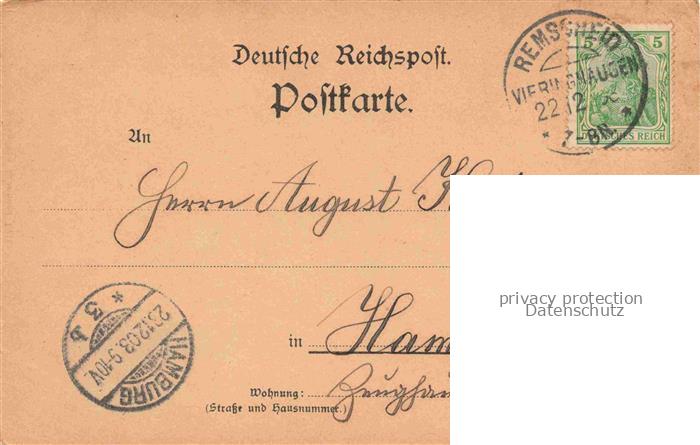 Deutsche Reichspost.
Postkarte.
REMSCHEID
VIERINGHAUSEN
22 12
* 7-8N. *
5 5
DEUTSCHES REICH
An
Herrn August
privacy protection
Datenschutz
* 3 b
23.12.03. 9-10V.
HAMBURG
in Ham
Wohnung:
(Straße und Hausnummer.)
Zeughau